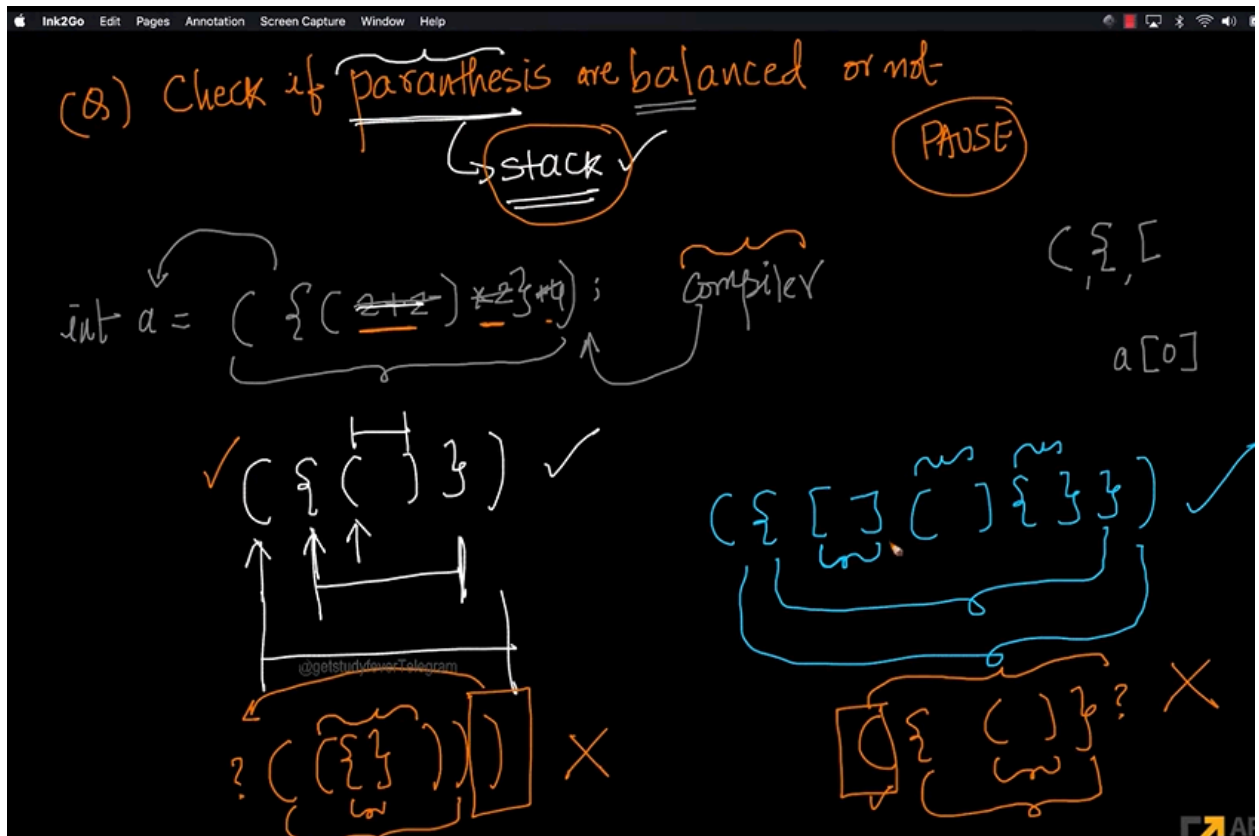 Ink2Go Edit Pages Annotation Screen Capture Window Help
(Q) Check if paranthesis are balanced or not
PAUSE
stack ✓
( , { , [
int a = ( { ( 2+2 ) *2 } *4 ) ; compiler
a [0]
✓ ( { ( ) } ) ✓
( { [ ] ( ) { } } ) ✓
@getstudyfeverTelegram
? ( ( { } ) ) ) X
( { ( ) } ? X